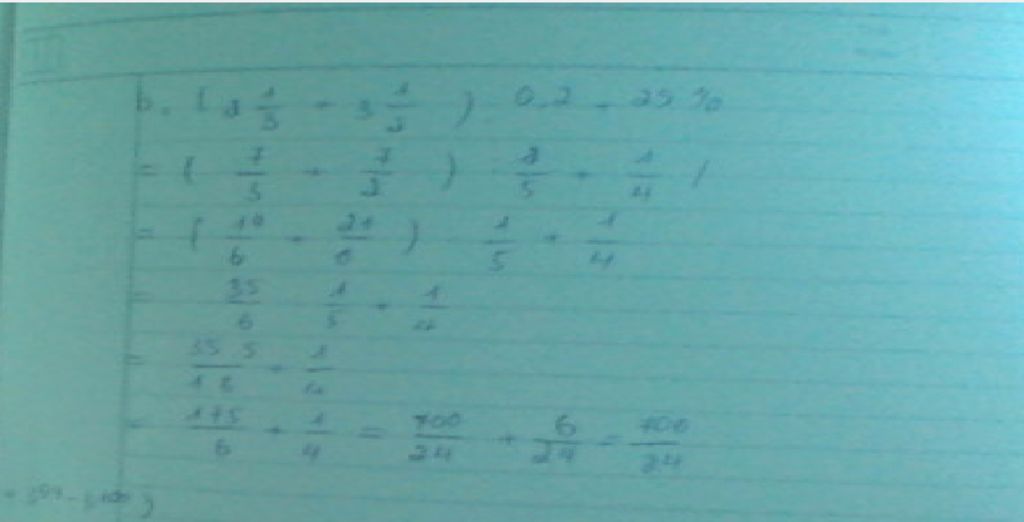 b. ( 2 1/3 + 3 1/2 ) : 0,2 + 25 %
= ( 7/3 + 7/2 ) : 1/5 + 1/4
= ( 14/6 + 21/6 ) : 1/5 + 1/4
= 35/6 : 1/5 + 1/4
= 35 . 5/1 6 + 1/4
= 175/6 + 1/4 = 700/24 + 6/24 = 706/24